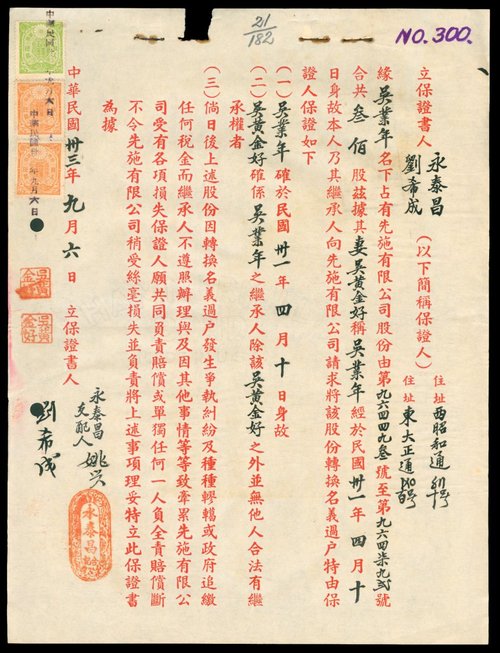 NO.300.
21/182
立保證書人 永泰昌 劉希成 (以下簡稱保證人) 住址 西昭和通 住址 東大正通
緣吳業年名下占有先施有限公司股份由第九六四四九叁號至第九六四柒九弍號
合共叁佰股茲據其妻吳黃金好稱吳業年經於民國卅一年四月十
日身故本人乃其繼承人向先施有限公司請求將該股份轉換名義過戶特由保
證人保證如下
(一) 吳業年確於民國卅一年四月十日身故
(二) 吳黃金好確係吳業年之繼承人除該吳黃金好之外並無他人合法有繼
承權者
(三) 倘日後上述股份因轉換名義過戶發生爭執糾紛及種種轇轕或政府追繳
任何稅金而繼承人不遵照辦理與及因其他事情等等致牽累先施有限公
司受有各項損失保證人願共同負責賠償或單獨任何一人負全責賠償斷
不令先施有限公司稍受絲毫損失並負責將上述事項理妥特立此保證書
為據
中華民國卅三年九月六日 立保證書人
永泰昌
支配人 姚
劉希成
永泰昌
吳黃金好
吳黃金好
中華民國 年九月六日